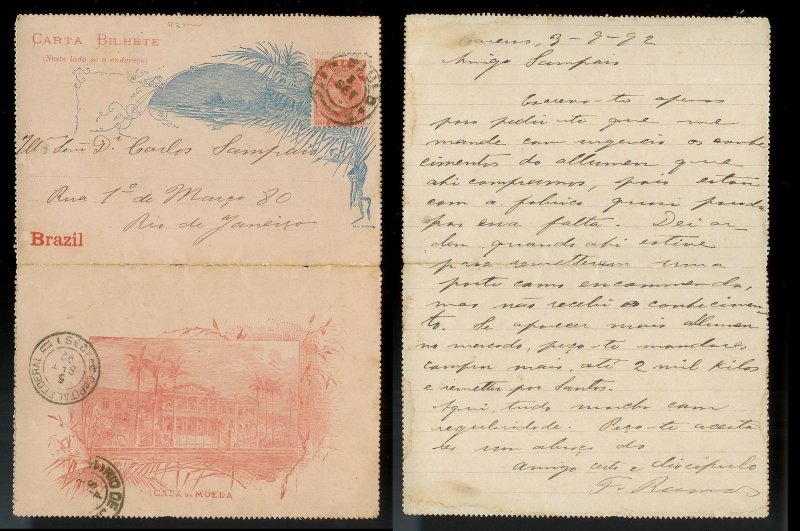 93
CARTA BILHETE
(Neste lado só o endereço)
Illmo Senr Dr Carlos Sampaio
Rua 1º de Março 80
Rio de Janeiro
Brazil
CAPITAL FEDERAL
5
92
CASA DA MOEDA
3-9-92
Amigo Sampaio
Escrevo-te apenas
para pedir-te que me
mande com urgencia os conhe-
cimentos do allumen que
ahi compramos, pois estou
com a fabrica quasi parada
por essa falta. Dei or
dem quando ahi estive
para remetterem uma
parte como encommenda,
mas não recebi o conhecimen-
to. Se aparecer mais allumen
no mercado, peço-te mandares
comprar mais, até 2 mil kilos
e remetter por Santos.
Aqui, tudo marcha com
regularidade. Peço-te aceita
res um abraço do
amigo certo e discipulo
F. Ramos